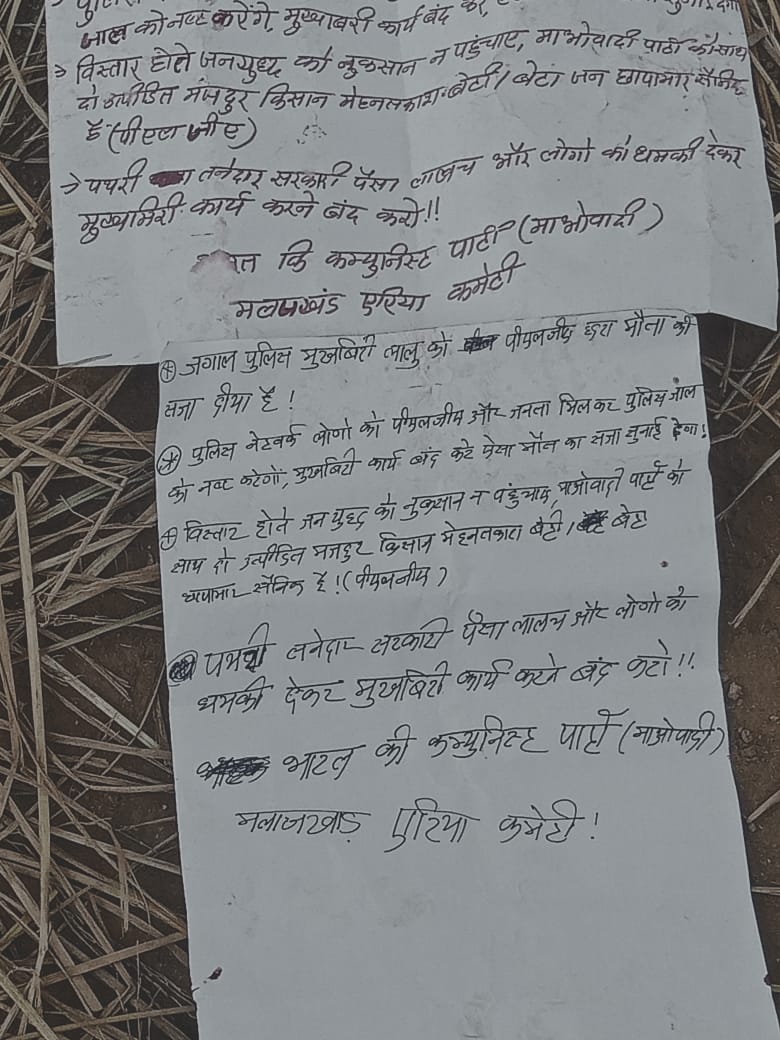 जाल को नष्ट करेंगे, मुखाबरी कार्य बंद करे,
→ विस्तार होते जनयुध्द को नुकसान न पहुंचाए, माओवादी पार्टी को साथ
दो उत्पीडित मजदुर किसान मेहनतकाश बेटी/बेटा जन छापामार सैनिक
है (पीएलजीए)
→ पपरी तनेदार सरकारी पैसा लालच और लोगो को धमकी देकर
मुख्यमिरी कार्य करने बंद करो!!
कि कम्युनिस्ट पार्टी (माओवादी)
मलाजखंड एरिया कमेटी
जगाल पुलिस मुखबिरी लालु को पीएलजीए द्वारा मौता की
सजा दीया है!
पुलिस नेटवर्क लोगो को पीएलजीए और जनता मिलकर पुलिस जाल
को नष्ट करेगों, मुखबिरी कार्य बंद करे ऐसा मौत का सजा सुनाई देगा!
विस्तार होते जन युद्ध को नुकसान न पहुंचाए, माओवादी पार्टी को
साथ दो उत्पीडित मजदुर किसान मेहनतकाश बेटी/बेटा
छापामार सैनिक है! (पीएलजीए)
तनेदार सरकारी पैसा लालच और लोगो को
धमकी देकर मुखबिरी कार्य करने बंद करो!!
भारत की कम्युनिस्ट पार्टी (माओवादी)
मलाजखाड़ एरिया कमेटी!